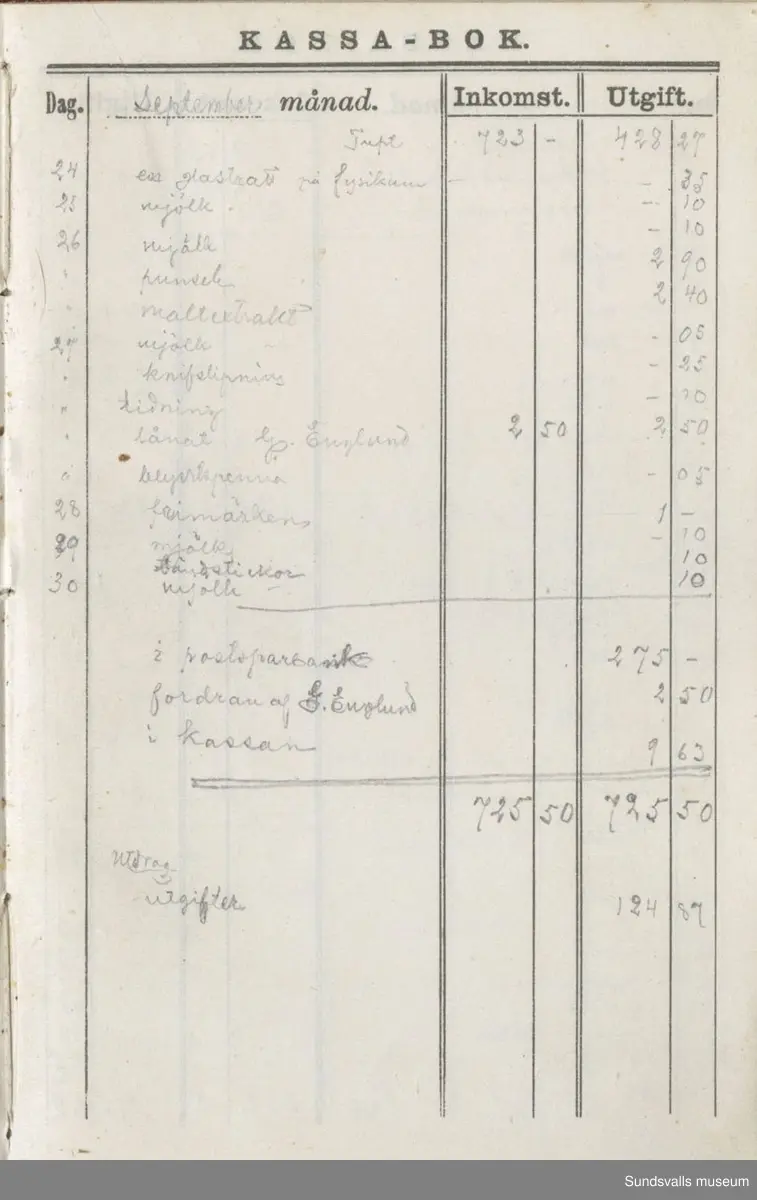 KASSA-BOK.
Dag. September månad. Inkomst. Utgift.
Trpt 723 - 428 27
24 en glastratt på fysikum - - 35
25 mjölk - - 10
26 mjölk - 10
" punsch 2 90
" maltextrakt 2 40
27 mjölk - 05
" knifslipning - 25
" tidning - 10
" lånat G. Englund 2 50 2 50
" blyertspenna - 05
28 frimärken 1 -
29 mjölk - 10
tändstickor 10
30 mjölk - 10
i postsparbank 275 -
fordran af G. Englund 2 50
i kassan 9 63
725 50 725 50
Utdrag
utgifter 124 87
Sundsvalls museum